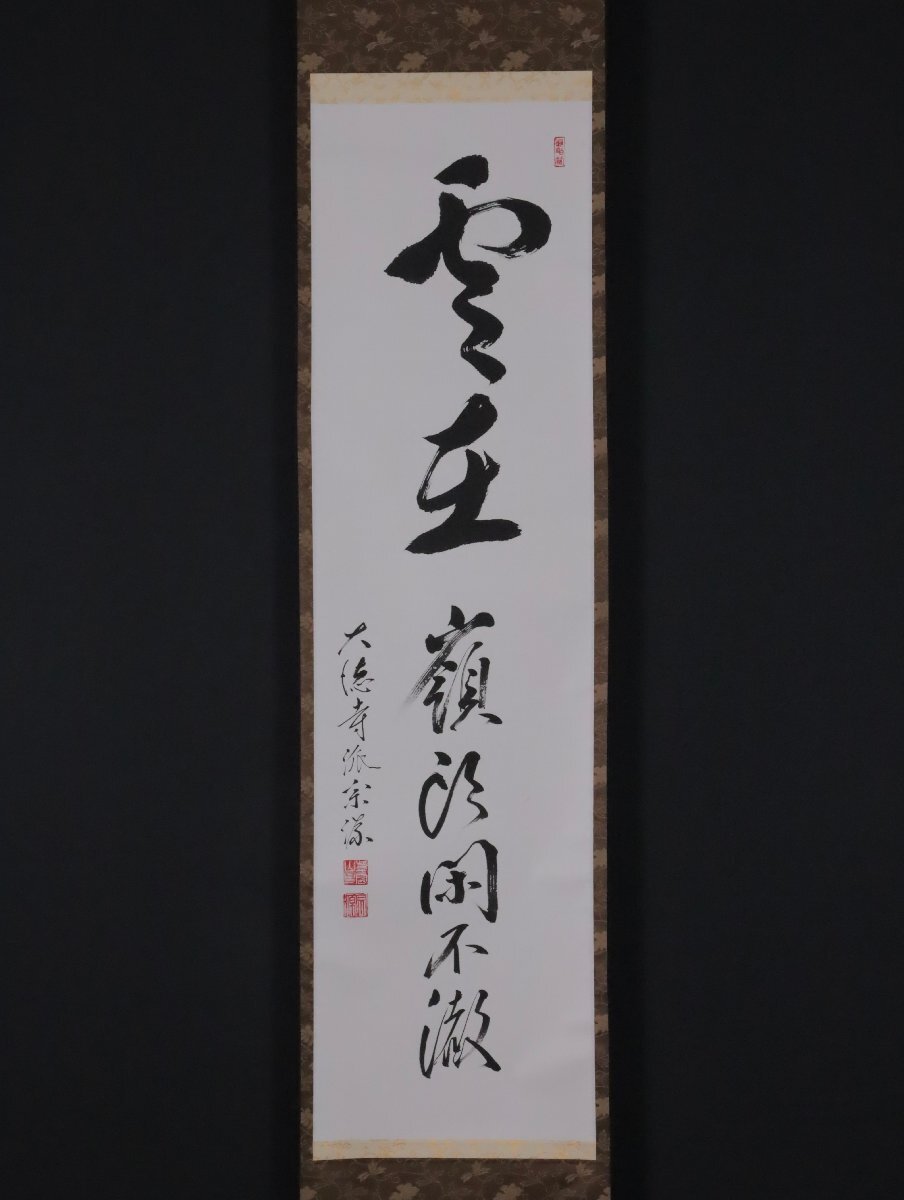 雲在嶺頭閑不徹
大徳寺派宗潔